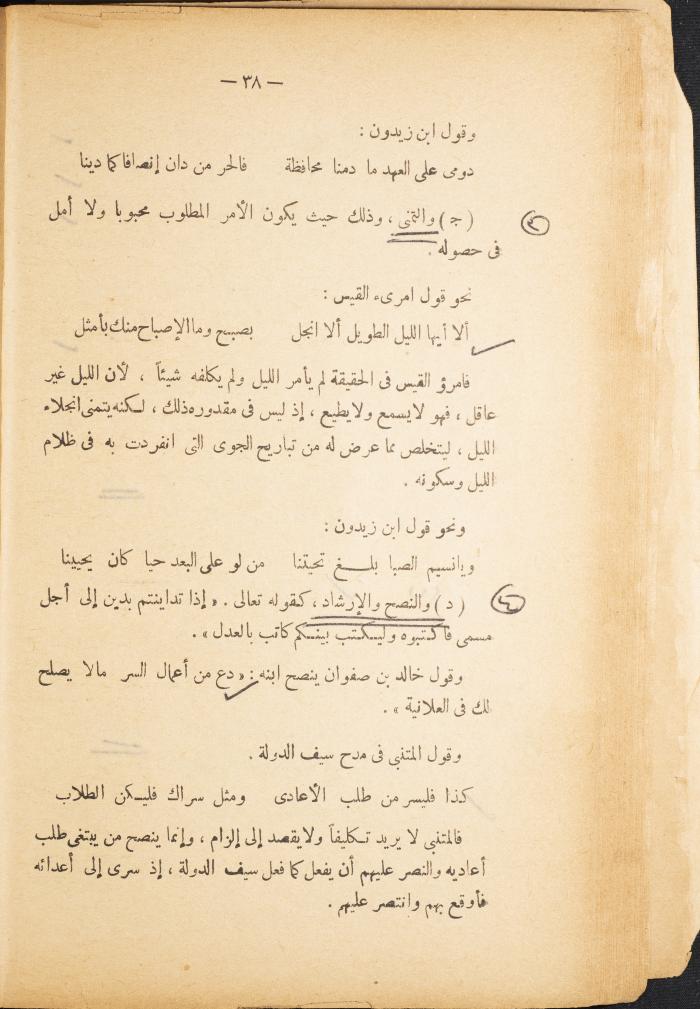 — ٣٨ —
وقول ابن زيدون :
دومى على العهد ما دمنا محافظة فالحر من دان إنصافا كما دينا
(ج) والتمنى ، وذلك حيث يكون الأمر المطلوب محبوبا ولا أمل
٣
فى حصوله .
نحو قول امرىء القيس :
ألا أيها الليل الطويل ألا انجل بصبح وما الإصباح منك بأمثل
فامرؤ القيس فى الحقيقة لم يأمر الليل ولم يكلفه شيئاً ، لأن الليل غير
عاقل ، فهو لا يسمع ولا يطيع ، إذ ليس فى مقدوره ذلك ، لكنه يتمنى انجلاء
الليل ، ليتخلص مما عرض له من تباريح الجوى التى انفردت به فى ظلام
الليل وسكونه .
ونحو قول ابن زيدون :
ويا نسيم الصبا بلغ تحيتنا من لو على البعد حيا كان يحيينا
(د) والنصح والإرشاد ، كقوله تعالى . « إذا تداينتم بدين إلى أجل
٤
مسمى فاكتبوه وليكتب بينكم كاتب بالعدل » .
وقول خالد بن صفوان ينصح ابنه : « دع من أعمال السر مالا يصلح
لك فى العلانية » .
وقول المتنبى فى مدح سيف الدولة .
كذا فليسر من طلب الأعادى ومثل سراك فليكن الطلاب
فالمتنبى لا يريد تكليفاً ولا يقصد إلى إلزام ، وإنما ينصح من يبتغى طلب
أعاديه والنصر عليهم أن يفعل كما فعل سيف الدولة ، إذ سرى إلى أعدائه
فأوقع بهم وانتصر عليهم .